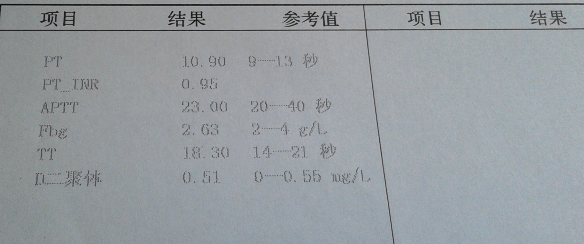 项目 结果 参考值 项目 结果
PT 10.90 9--13 秒
PT_INR 0.95
APTT 23.00 20--40 秒
Fbg 2.63 2--4 g/L
TT 18.30 14--21 秒
D二聚体 0.51 0--0.55 mg/L